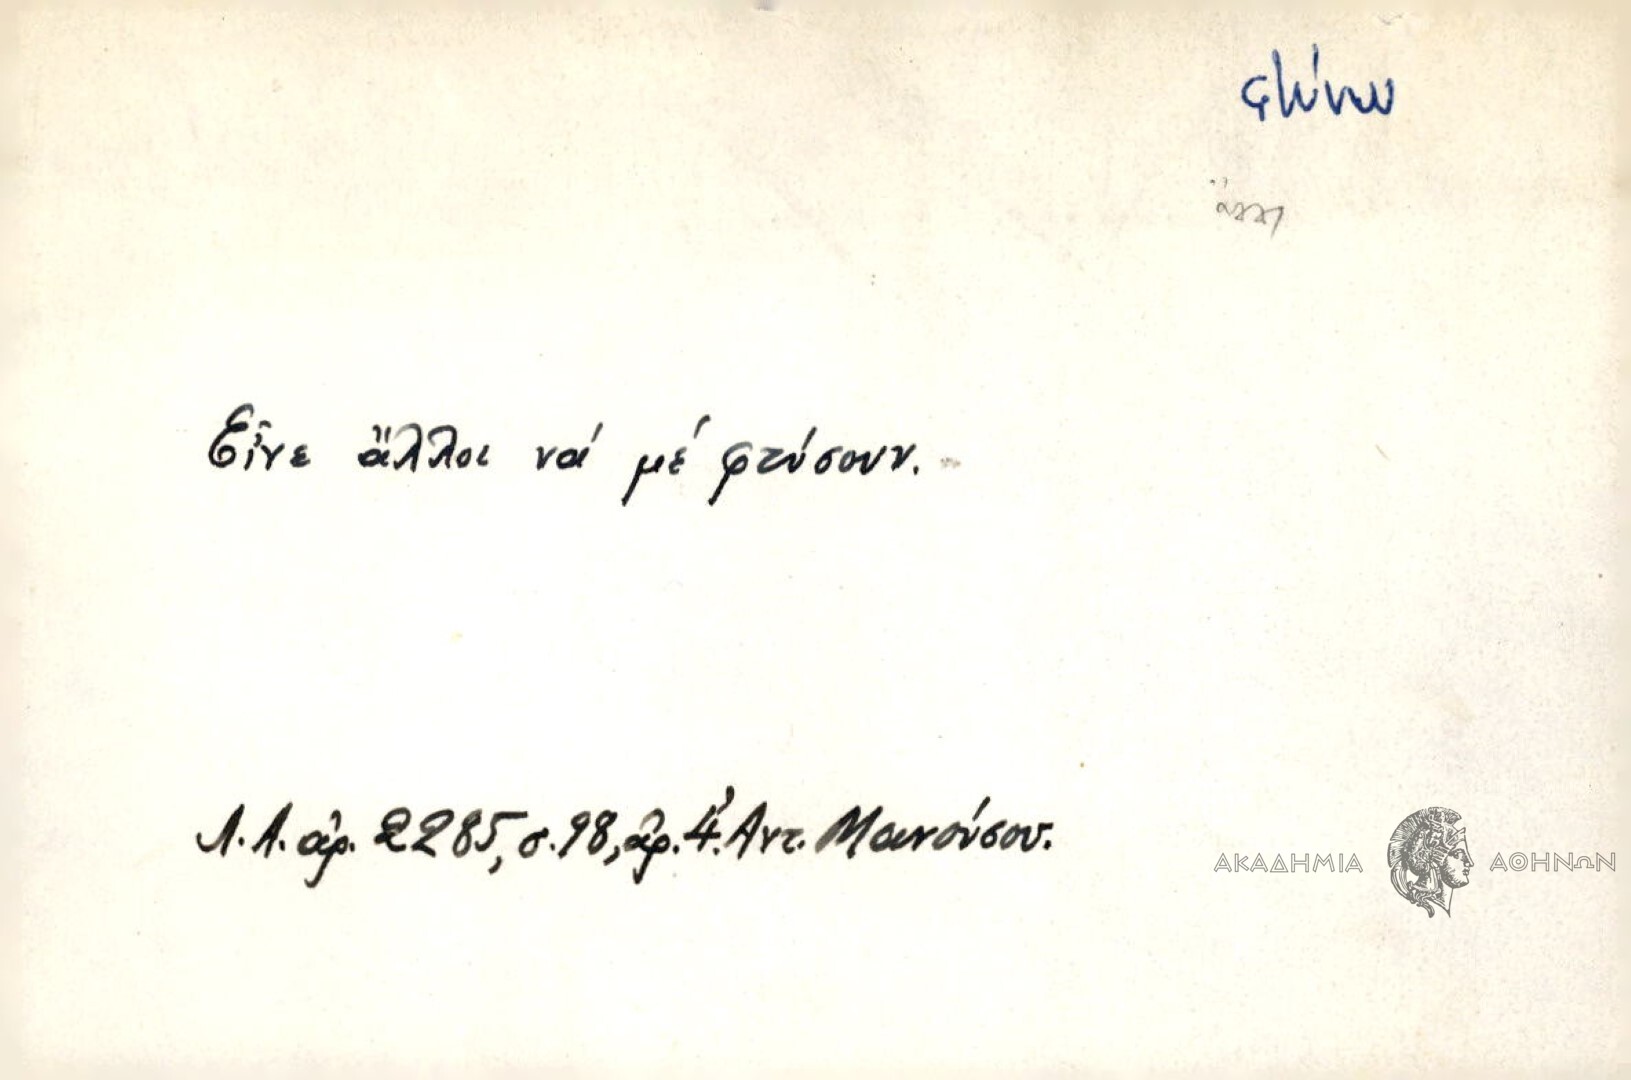 φτύνω
Εἶνε ἄλλοι νά μέ φτύσουν.
Λ.Α. ἀρ. 2285, σ. 98, ἀρ. 4. Ἀντ. Μανούσου.
ΑΚΑΔΗΜΙΑ ΑΘΗΝΩΝ